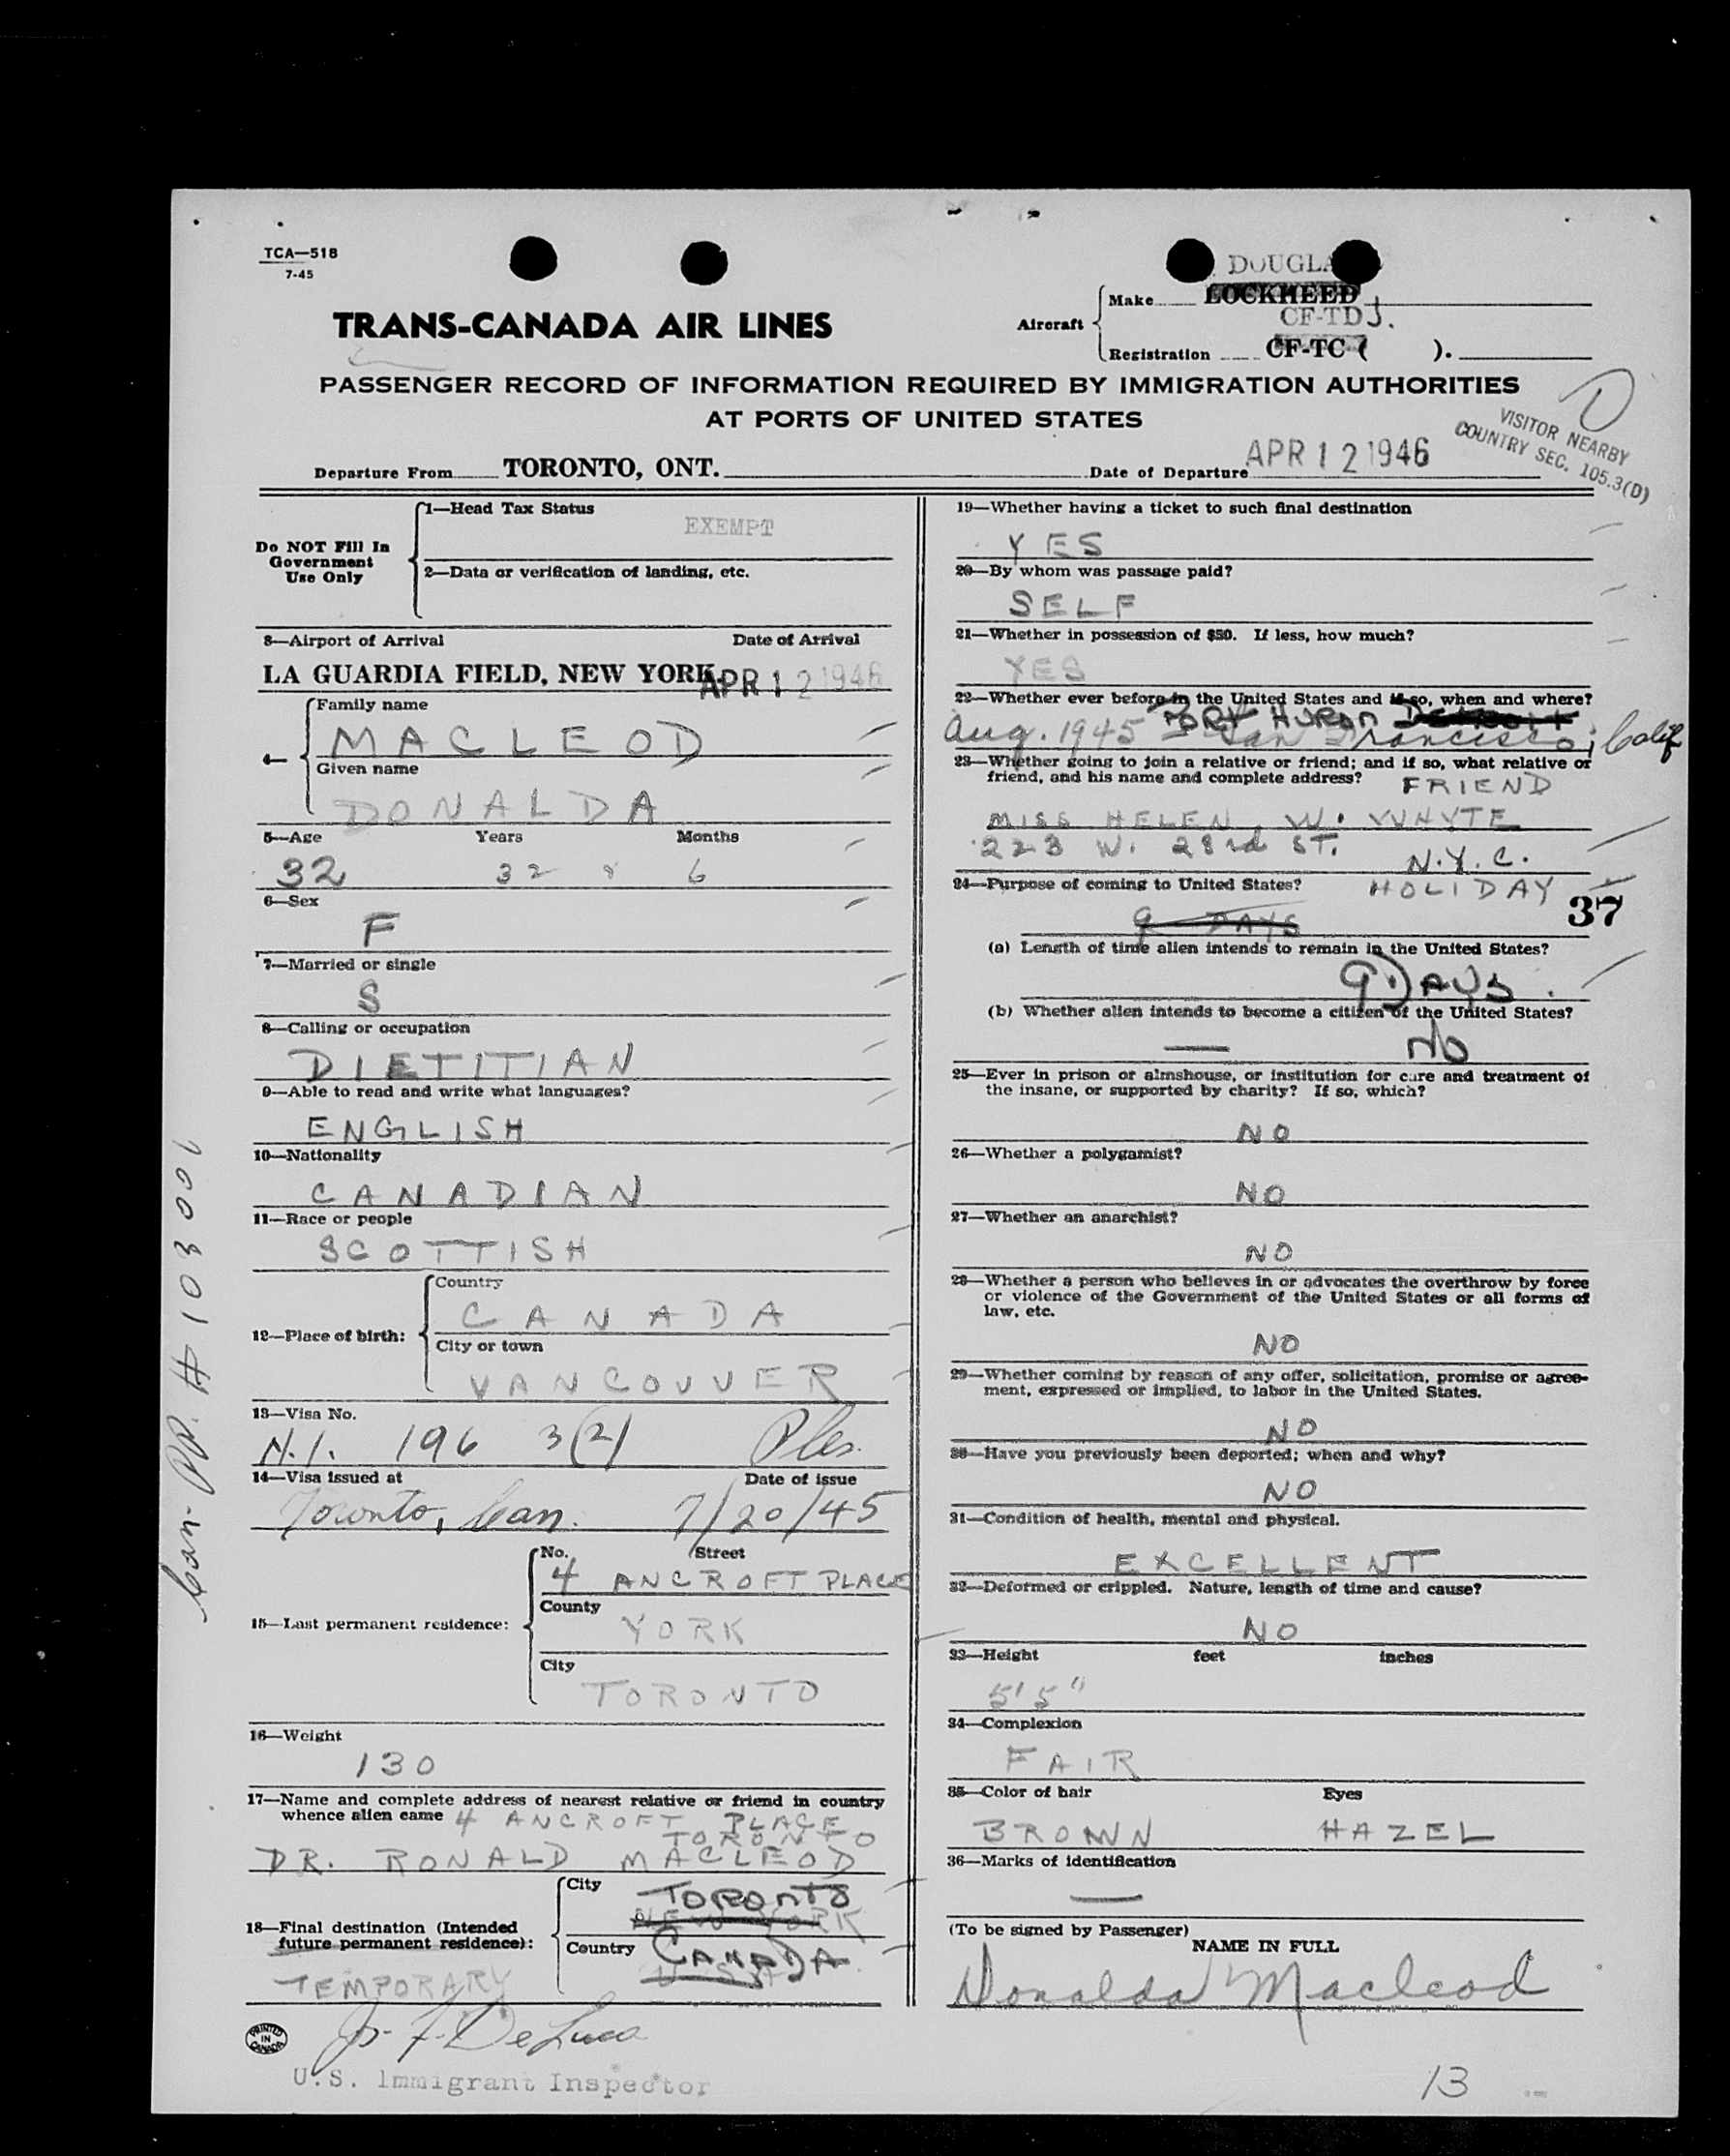 TCA—518
7-45
DOUGLA
TRANS-CANADA AIR LINES
Aircraft
Make LOCKHEED
CF-TDJ.
Registration CF-TC ( ).
PASSENGER RECORD OF INFORMATION REQUIRED BY IMMIGRATION AUTHORITIES
AT PORTS OF UNITED STATES
D
VISITOR NEARBY
COUNTRY SEC. 105.3(D)
Departure From TORONTO, ONT. Date of Departure APR 12 1946
Do NOT Fill In
Government
Use Only
1—Head Tax Status
EXEMPT
2—Data or verification of landing, etc.
3—Airport of Arrival Date of Arrival
LA GUARDIA FIELD, NEW YORK APR 12 1946
4—
Family name
MACLEOD
Given name
DONALDA
5—Age Years Months
32 32 & 6
6—Sex
F
7—Married or single
S
8—Calling or occupation
DIETITIAN
9—Able to read and write what languages?
ENGLISH
10—Nationality
CANADIAN
11—Race or people
SCOTTISH
12—Place of birth:
Country
CANADA
City or town
VANCOUVER
13—Visa No.
N.I. 196 3(2)
14—Visa issued at Date of issue
Toronto, Can. 7/20/45
15—Last permanent residence:
No. Street
4 ANCROFT PLACE
County
YORK
City
TORONTO
16—Weight
130
17—Name and complete address of nearest relative or friend in country
whence alien came 4 ANCROFT PLACE
TORONTO
DR. RONALD MACLEOD
18—Final destination (Intended
future permanent residence):
TEMPORARY
City TORONTO
NEW YORK
Country CANADA
U.S.A.
PRINTED
IN
CANADA
Js. F. DeLuca
U.S. Immigrant Inspector
Can. PP. # 103001
19—Whether having a ticket to such final destination
YES
20—By whom was passage paid?
SELF
21—Whether in possession of $50. If less, how much?
YES
22—Whether ever before in the United States and if so, when and where?
PORT HURON DETROIT
Aug. 1945 San Francisco, Calif
23—Whether going to join a relative or friend; and if so, what relative or
friend, and his name and complete address? FRIEND
MISS HELEN W. WHYTE
223 W. 23rd ST. N.Y.C.
24—Purpose of coming to United States? HOLIDAY
37
9 DAYS
(a) Length of time alien intends to remain in the United States?
9 DAYS.
(b) Whether alien intends to become a citizen of the United States?
— No
25—Ever in prison or almshouse, or institution for care and treatment of
the insane, or supported by charity? If so, which?
NO
26—Whether a polygamist?
NO
27—Whether an anarchist?
NO
28—Whether a person who believes in or advocates the overthrow by force
or violence of the Government of the United States or all forms of
law, etc.
NO
29—Whether coming by reason of any offer, solicitation, promise or agree-
ment, expressed or implied, to labor in the United States.
NO
30—Have you previously been deported; when and why?
NO
31—Condition of health, mental and physical.
EXCELLENT
32—Deformed or crippled. Nature, length of time and cause?
NO
33—Height feet inches
5' 5"
34—Complexion
FAIR
35—Color of hair Eyes
BROWN HAZEL
36—Marks of identification
—
(To be signed by Passenger)
NAME IN FULL
Donalda Macleod
13